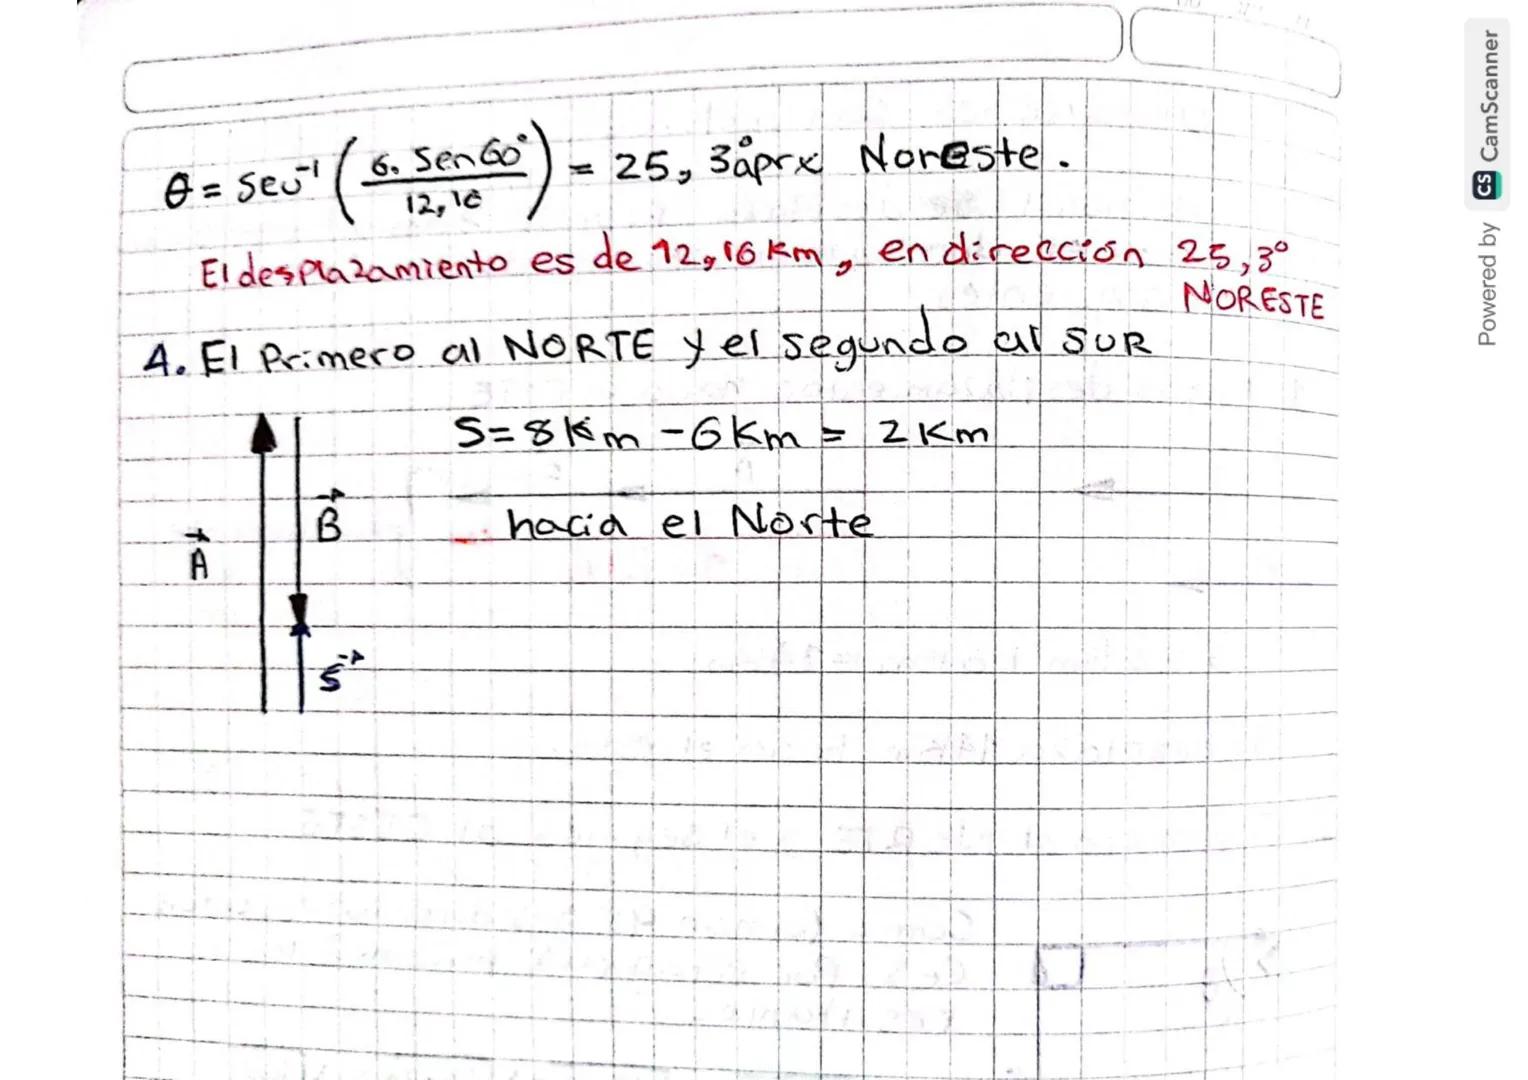 θ = sen⁻¹ ( 6. Sen60° / 12,16 ) = 25, 3° aprx Noreste.
El desplazamiento es de 12,16 Km, en dirección 25,3°
NORESTE
4. El Primero al NORTE y el segundo al SUR
S = 8 Km - 6 Km = 2 Km
B
hacia el Norte
A
S
Powered by CS CamScanner